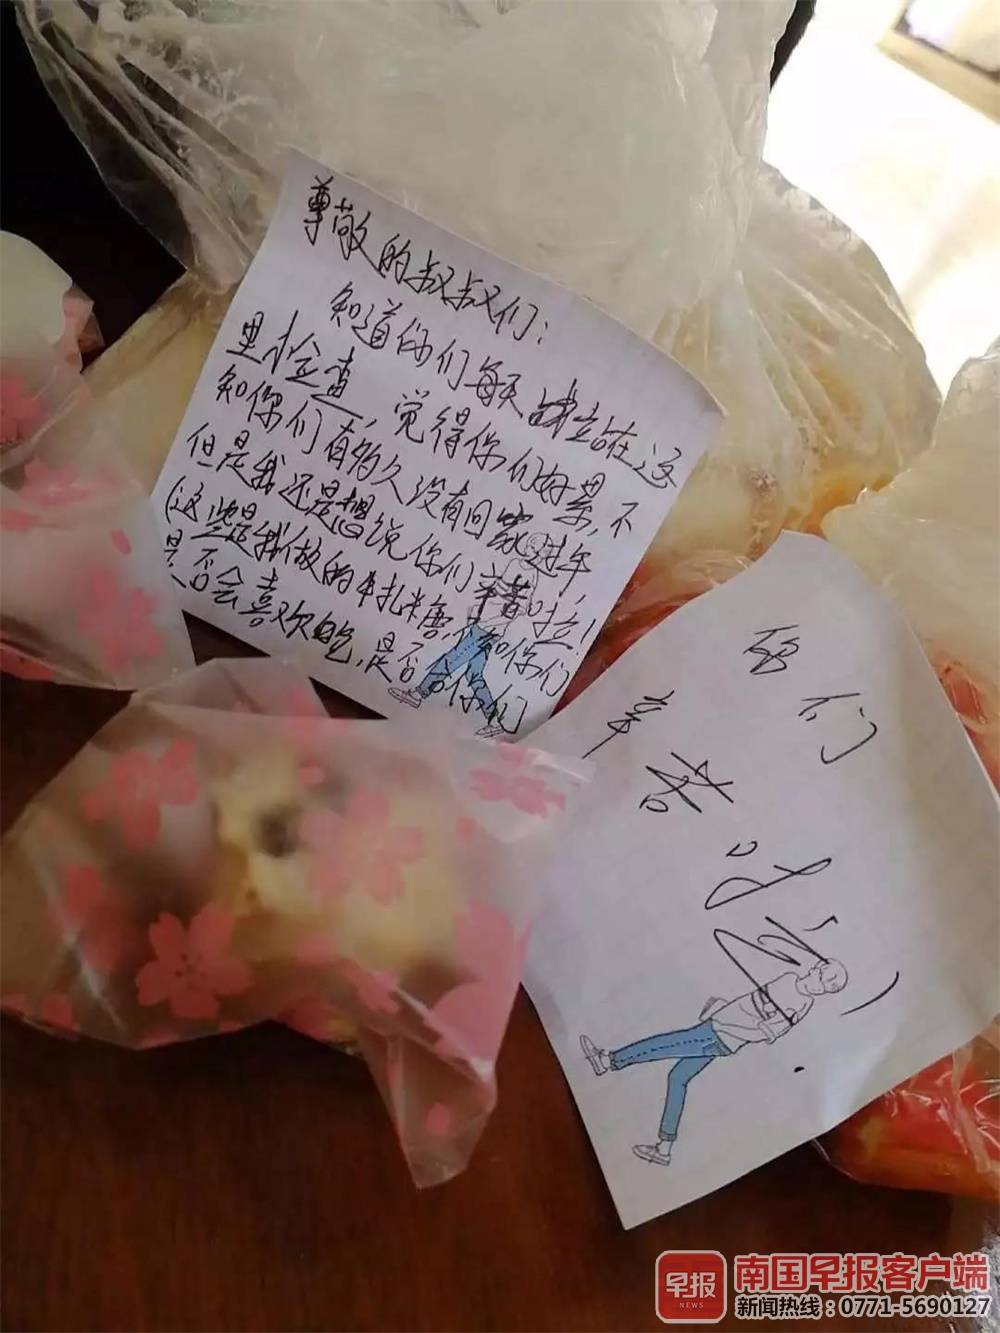 尊敬的叔叔们：
知道你们每天都站在这
里检查，觉得你们好累，不
知你们有多久没有回家过年，
但是我还是想说你们辛苦啦！
(这些是我做的牛扎糖，不知你们
是否会喜欢吃，是否合你们
你们
辛苦啦
早报
NEWS
南国早报客户端
新闻热线：0771-5690127